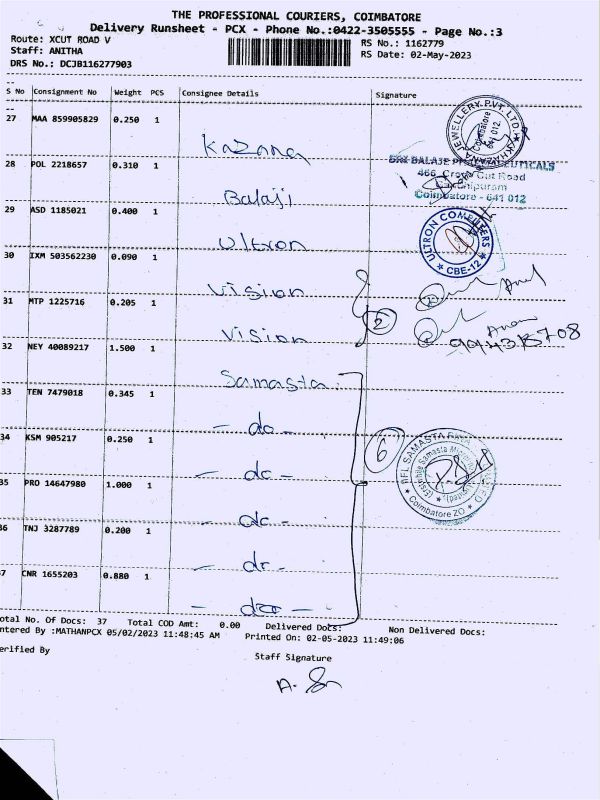 THE PROFESSIONAL COURIERS, COIMBATORE
Delivery Runsheet - PCX - Phone No.:0422-3505555 - Page No.:3
Route: XCUT ROAD V
RS No.: 1162779
Staff: ANITHA
RS Date: 02-May-2023
DRS No.: DCJB116277903
S No Consignment No Weight PCS Consignee Details Signature
27 MAA 859905829 0.250 1 Kazana
JEWELLERY PVT. LTD.
Coimbatore
641 012
28 POL 2218657 0.310 1 Balaji
466, Cross Cut Road
Coimbatore - 641 012
29 ASD 1185021 0.400 1 Ultron
ULTRON COMPUTERS
CBE-12
30 IXM 503562230 0.090 1 Vision
31 MTP 1225716 0.205 1 Vision
2
32 NEY 40089217 1.500 1 Samasta
33 TEN 7479018 0.345 1 - do -
34 KSM 905217 0.250 1 - do -
6
Coimbatore ZO
35 PRO 14647980 1.000 1 - do -
36 TNJ 3287789 0.200 1 - do -
37 CNR 1655203 0.880 1 - do -
otal No. Of Docs: 37 Total COD Amt: 0.00 Delivered Docs: Non Delivered Docs:
ntered By :MATHANPCX 05/02/2023 11:48:45 AM Printed On: 02-05-2023 11:49:06
erified By
Staff Signature